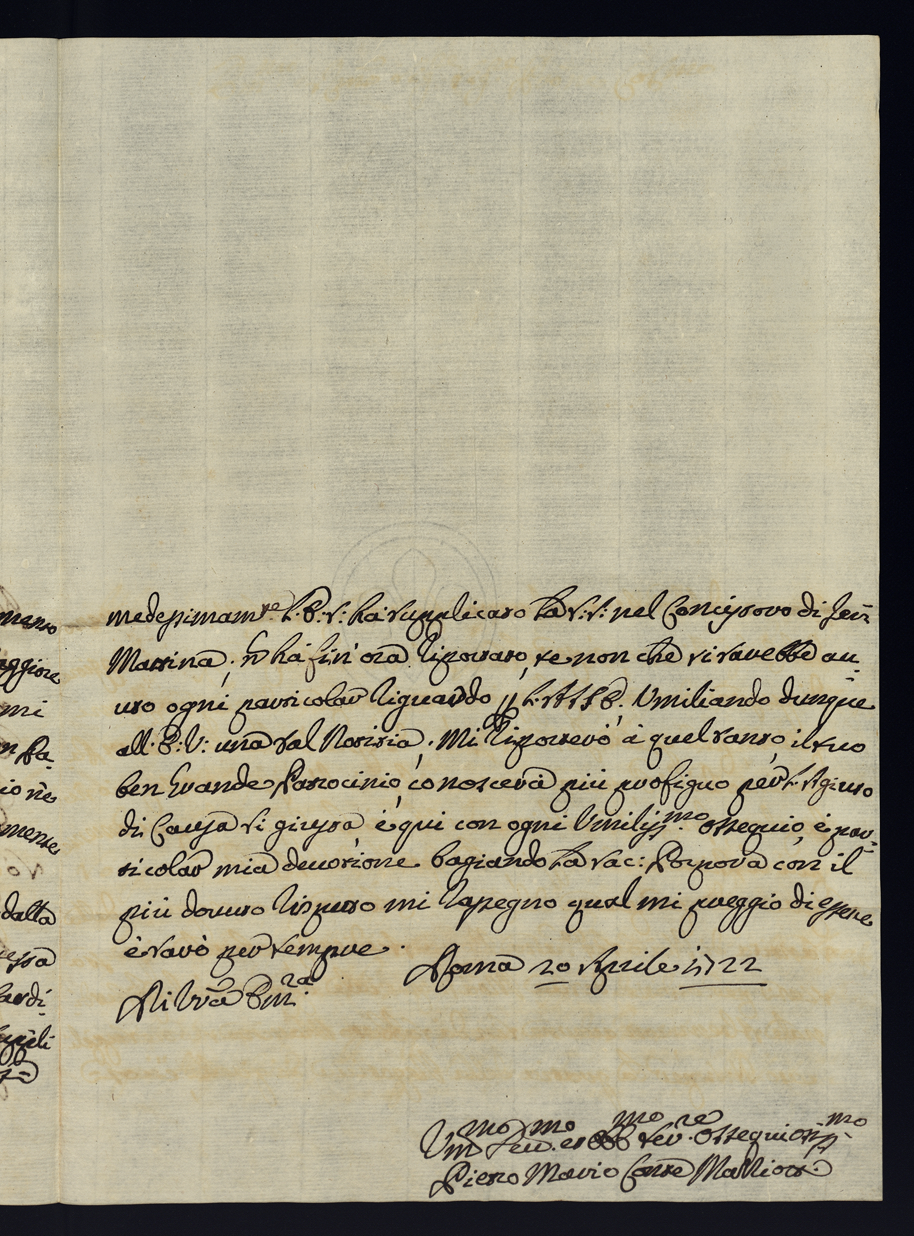 medesimam.te L'E.V. hà supplicato La S.S. nel Concistoro di
Mattina, hà fin'ora riportato, se non che si sarebbe au-
uto ogni particolar riguardo Umiliando dunque
all'E.V. una tal Notizia. Mi riporterò à quel tanto, il suo
ben Grande Patrocinio, conoscerà più profiguo per
di Causa si giusta, è qui con ogni Umiliss.mo ossequio, è par-
ticolar mia deuotione bagiando La sac: Porpora con il
più douuto rispetto mi rassegno qual mi preggio di essere
è sarò per sempre.
Roma 20 Aprile 1722
Di Vrã Em.za
Um.mo Deu.mo et Obb.mo ser.re Ossequiosiss.mo
Pietro Mario Conte
manto
aggiore
mi
Pa-
ione
mente
dalla
essa